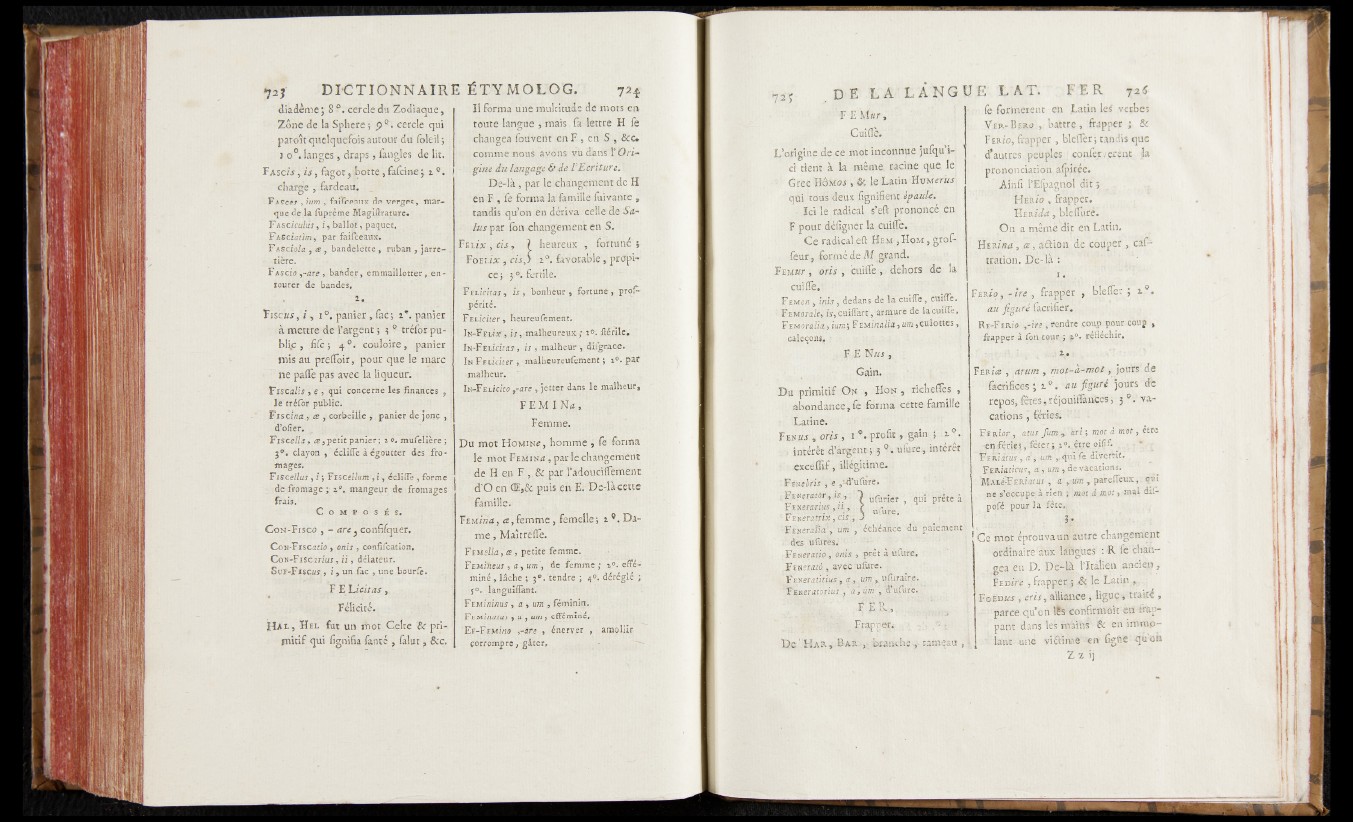 723 DICTIONNAIRE ÉTYMOLOG. 724
diadême ; 8°. cercle du Zodiaque,
Zône de la Sphere ; 9°. cercle qui
paroît quelquefois autour du soleil ;
10°. langes, draps, sangles de lit.
FAscis, is, fagot, botte, fascine ; 2°.
charge, fardeau.
FAsces, ium, faisceaux de verges, mar-
que de la suprême Magistrature.
FAsciculus, i, ballot, paquet.
FAsciatim, par faisceaux.
FAsciola, æ, bandelette, ruban, jarre-
tière.
FAscio,-are, bander, emmaillotter, en-
tourer de bandes.
2.
FIscus, i, 1°. panier, sac ; 2°. panier
à mettre de l'argent ; 3° trésor pu-
blic, fisc ; 4°. couloire, panier
mis au pressoir, pour que le marc
ne passe pas avec la liqueur.
FIscalis, e, qui concerne les finances,
le trésor public.
FIscina, æ, corbeille, panier de jonc,
d'osier.
FIscella, æ, petit panier ; 2°. muselière ;
3°. clayon, éclisse à égoutter des fro-
mages.
FIscellus, i ; FIscellum, i, éclisse, forme
de fromage ; 2°. mangeur de fromages
frais.
COMPOSÉS.
CON-FIsco, - are, confisquer.
CON-FIscatio, onis, confiscation.
CON-FIscarius, ii, délateur.
SUF-FIscus, i, un sac, une bourse.
FELicitas,
Félicité.
HAL, HEL fut un mot Celte & pri-
mitif qui signifia santé, salut, &c.
Il forma une multitude de mots en
toute langue, mais sa lettre H se
changea souvent en F, en S, &c.
comme nous avons vu dans l'Ori-
gine du langage & de l'Ecriture.
De-là, par le changement de H
en F, se forma la famille suivante,
tandis qu'on en dériva celle de Sa-
lus par son changement en S.
FELix, cis, } heureux, fortuné ;
FOELix, cis, } 2°. favorable, propi-
ce ; 3°. fertile.
FELicitas, is, bonheur, fortune, pros-
périté.
FELiciter, heureusement.
IN-FELix, is, malheureux ; 2°. stérile.
IN-FELicitas, is, malheur, disgrace.
IN FELiciter, malheureusement ; 2°. par
malheur.
IN-FELicito,-are, jetter dans le malheur,
FEMINa,
Femme.
Du mot HOMINe, homme, se forma
le mot FEMINa, par le changement
de H en F, & par l'adoucissement
d'O en Œ, & puis en E. De-là cette
famille.
FEMina, æ, femme, femelle ; 2°. Da-
me, Maîtresse.
FEMella, æ, petite femme.
FEMineus, a, um, de femme ; 2°. effé-
miné, lâche ; 3°. tendre ; 4°. déréglé ;
5°. languissant.
FEMininus, a, um, féminin.
FEMinatus, a, um, efféminé.
EF-FEMino,-are, énerver, amollir
corrompre, gâter.
725 DE LA LANGUE LAT. FER 726
FEMur,
Cuisse.
L'origine de ce mot inconnue jusqu'i-
ci tient à la même racine que le
Grec HÔMos, & le Latin HUMerus
qui tous deux signifient épaule.
Ici le radical s'est prononcé en
F pour désigner la cuisse.
Ce radical est HEM, HOM, gros-
seur, formé de M grand.
FEMur, oris, cuisse, dehors de la
cuisse.
FEMen, inis, dedans de la cuisse, cuisse.
FEMorale, is, cuissart, armure de la cuisse.
FEMoralia, ium ; FEMinalia, um, culottes,
caleçons.
FENus,
Gain.
Du primitif ON, HON, richesses,
abondance, se forma cette famille
Latine.
FENus, oris, 1°. profit, gain ; 2°.
intérêt d'argent ; 3°. usure, intérêt
excessif, illégitime.
FENebris, e, d'usure.
FENerator, is, }
FENerarius, ii, } usurier, qui prête à
FENeratrix, cis, } usure.
FENeralia, um, échéance du paiement
des usures.
FENeratio, onis, prêt à usure.
FENerató, avec usure.
FENeratitius, a, um, usuraire.
FENeratorius, a, um, d'usure.
FER,
Frapper.
De HAR, BAR, branche, rameau,
se formerent en Latin les verbes
VER-BERO, battre, frapper ; &
FERio, frapper, blesser ; tandis que
d'autres peuples conserverent la
prononciation aspirée.
Ainsi l'Espagnol dit ;
HERIO, frapper.
HERida, blessure.
On a même dit en Latin,
HERina, æ, action de couper, cas-
tration. De-là :
1.
FERio, -ire, frapper, blesser ; 2°.
au figuré sacrifier.
RE-FERio,-ire, rendre coup pour coup,
frapper à son tour ; 2°. réfléchir.
2.
FERiæ, arum, mot-à-mot, jours de
sacrifices ; 2°. au figuré jours de
repos, fêtes, réjouissances ; 3°. va-
cations, féries.
FERior, atus sum, ari ; mot à mot, être
en féries, fêter ; 2°. être oisif.
FERiatus, a, um, qui se divertit.
FERiaticus, a, um, de vacations.
MALÈ-FERiatus, a, um, paresseux, qui
ne s'occupe à rien ; mot à mot, mal dis-
posé pour la fête.
3.
Ce mot éprouva un autre changement
ordinaire aux langues : R se chan-
gea en D. De-là l'Italien ancien,
FEDire, frapper ; & le Latin,
FŒDUS, eris, alliance, ligue, traité,
parce qu'on les confirmoit en frap-
pant dans les mains & en immo-
lant une victime en signe qu'on
Zz ij